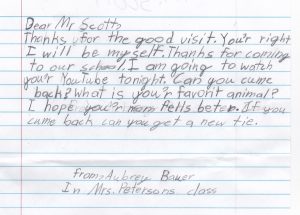 Dear Mr Scott,
Thanks for the good visit. You'r right
I will be myself. Thanks for coming
to our school. I am going to watch
your YouTube tonight. Can you came
back? What is your favorit animal?
I hope your mom fells beter. If you
came back can you get a new tie.
from: Aubrey Bauer
In Mrs. Petersons class